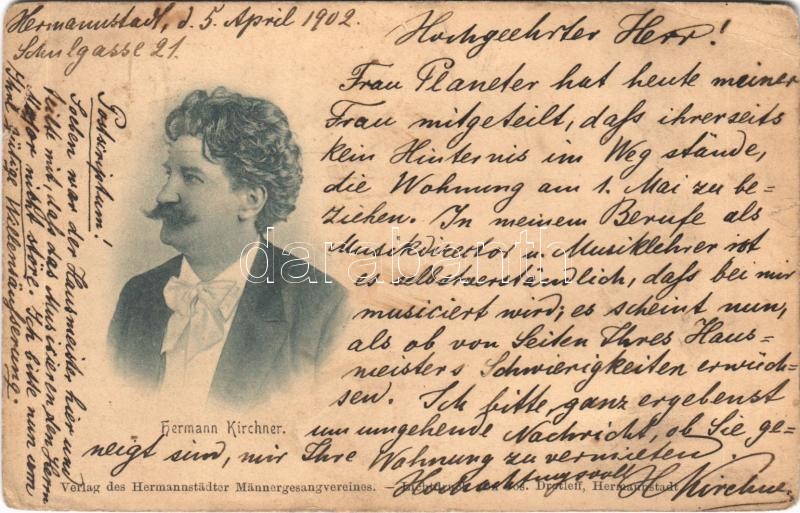 Hermannstadt, d. 5. April 1902.
Schulgasse 21.
Hochgeehrter Herr!
Frau Planeter hat heute meiner
Frau mitgeteilt, daſs ihrerseits
kein Hinternis im Weg stände,
die Wohnung am 1. Mai zu be=
ziehen. In meinem Berufe als
Musikdirector u. Musiklehrer ist
es selbstverständlich, daſs bei mir
musiciert wird; es scheint nun,
als ob von Seiten Ihres Haus=
meisters Schwierigkeiten erwüch=
sen. Ich bitte, ganz ergebenst
um umgehende Nachricht, ob Sie ge=
neigt sind, mir Ihre Wohnung zu vermieten.
Hochachtungsvoll H. Kirchner
Postscriptum!
Soeben war der Hausmeister hier und
teilte mit, daſs das Musicieren den Herrn
Major nicht störe. Ich bitte nun um
Ihre gütige Willensäuſserung.
Hermann Kirchner.
Verlag des Hermannstädter Männergesangvereines. — Lichtdruck von Jos. Drotleff, Hermannstadt.
darabanth